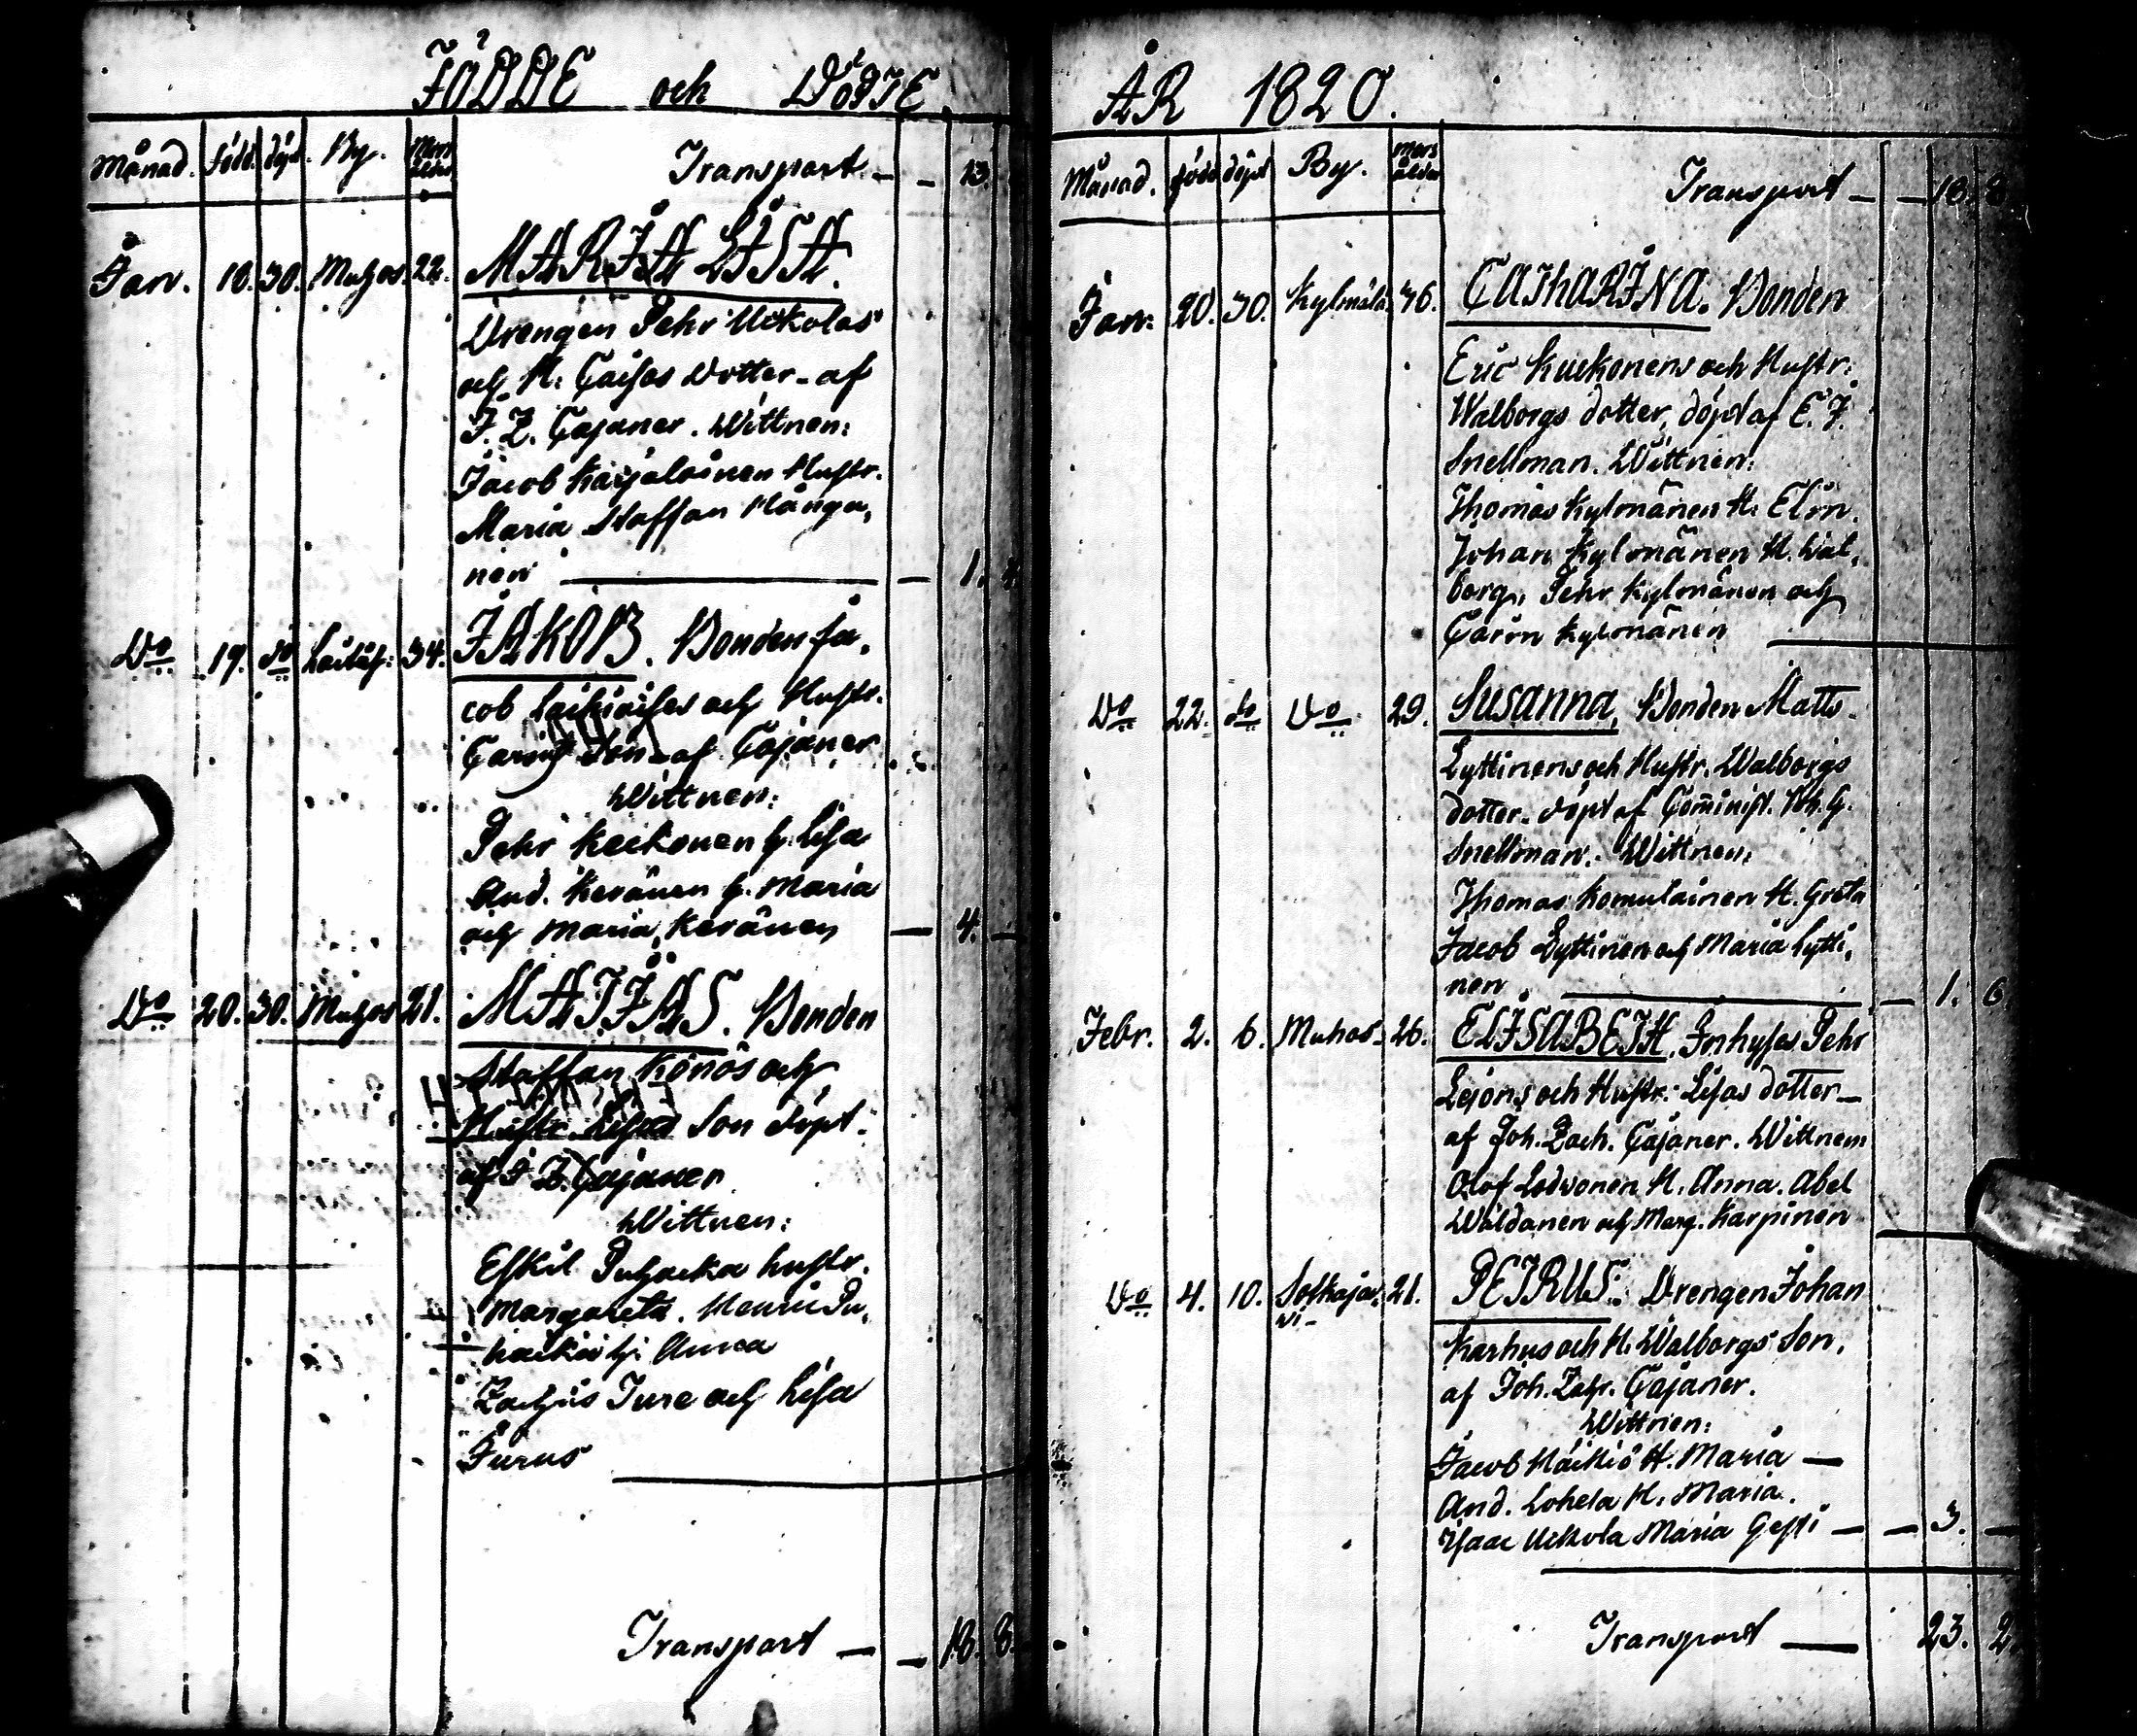 FÖDDE och DÖPTE
Månad. född. döpt. By. Mors ålder
Transport — — 13.
Jan. 18. 30. Muhos. 22. MARIA LISA.
Drengen Pehr Uckolas
och H. Caisas dotter af
J. Z. Cajaner. Wittnen:
Jacob Karjalainen Hustr.
Maria Staffan Hånga,
nen — 1.
Do 19. do 34. JAKOB. Bonden Ja,
cob och Hustr.
Carins Son af Cajaner
Wittnen:
Pehr Keckonen h. Lisa
And. Keränen h. Maria
och Maria Keränen — 4. —
Do 20. 30. Muhos 21. MATIAS. Bonden
Staffan Könös och
Hustr. Lisas Son döpt
af J. Z. Cajaner
Wittnen:
Eskil Puhacka hustr.
Margareta. Henric Pu,
hacka h. Anna
Zachris Ture och Lisa
Turus
Transport — — 18. 8.
ÅR 1820.
Månad. född döpt By. mors ålder
Transport — — 18. 8.
Jan. 20. 30. Kylmälä. 36. CATHARINA. Bonden
Eric Kuckonens och Hustr.
Walborgs dotter, döpt af E. J.
Snellman. Wittnen:
Thomas Kylmänen H. Elin.
Johan Kylmänen H. Wal,
borg, Pehr Kylmänen och
Carin Kylmänen
Do 22. do Do 29. Susanna, Bonden Matts
Lyttinens och Hustr. Walborgs
dotter. döpt af Cominist. Joh. G.
Snellman. Wittnen:
Thomas Komulainen H. Greta
Jacob Lyttinen och Maria Lytti,
nen — 1. 6.
Febr. 2. 6. Muhos. 26. ELISABETH. Inhyses Pehr
Lejons och Hustr. Lisas dotter —
af Joh. Zach. Cajaner. Wittnen
Olof Lodvonen H. Anna. Abel
Waldanen och Marg. Karpinen
Do 4. 10. Sotkajär, 21. PETRUS. Drengen Johan
vi
Karhus och H. Walborgs Son.
af Joh. Zach. Cajaner.
Wittnen:
Jacob Häikiö H. Maria —
And. Lohela H. Maria.
Isaac Uckola Maria — — 3. —
Transport — 23. 2.